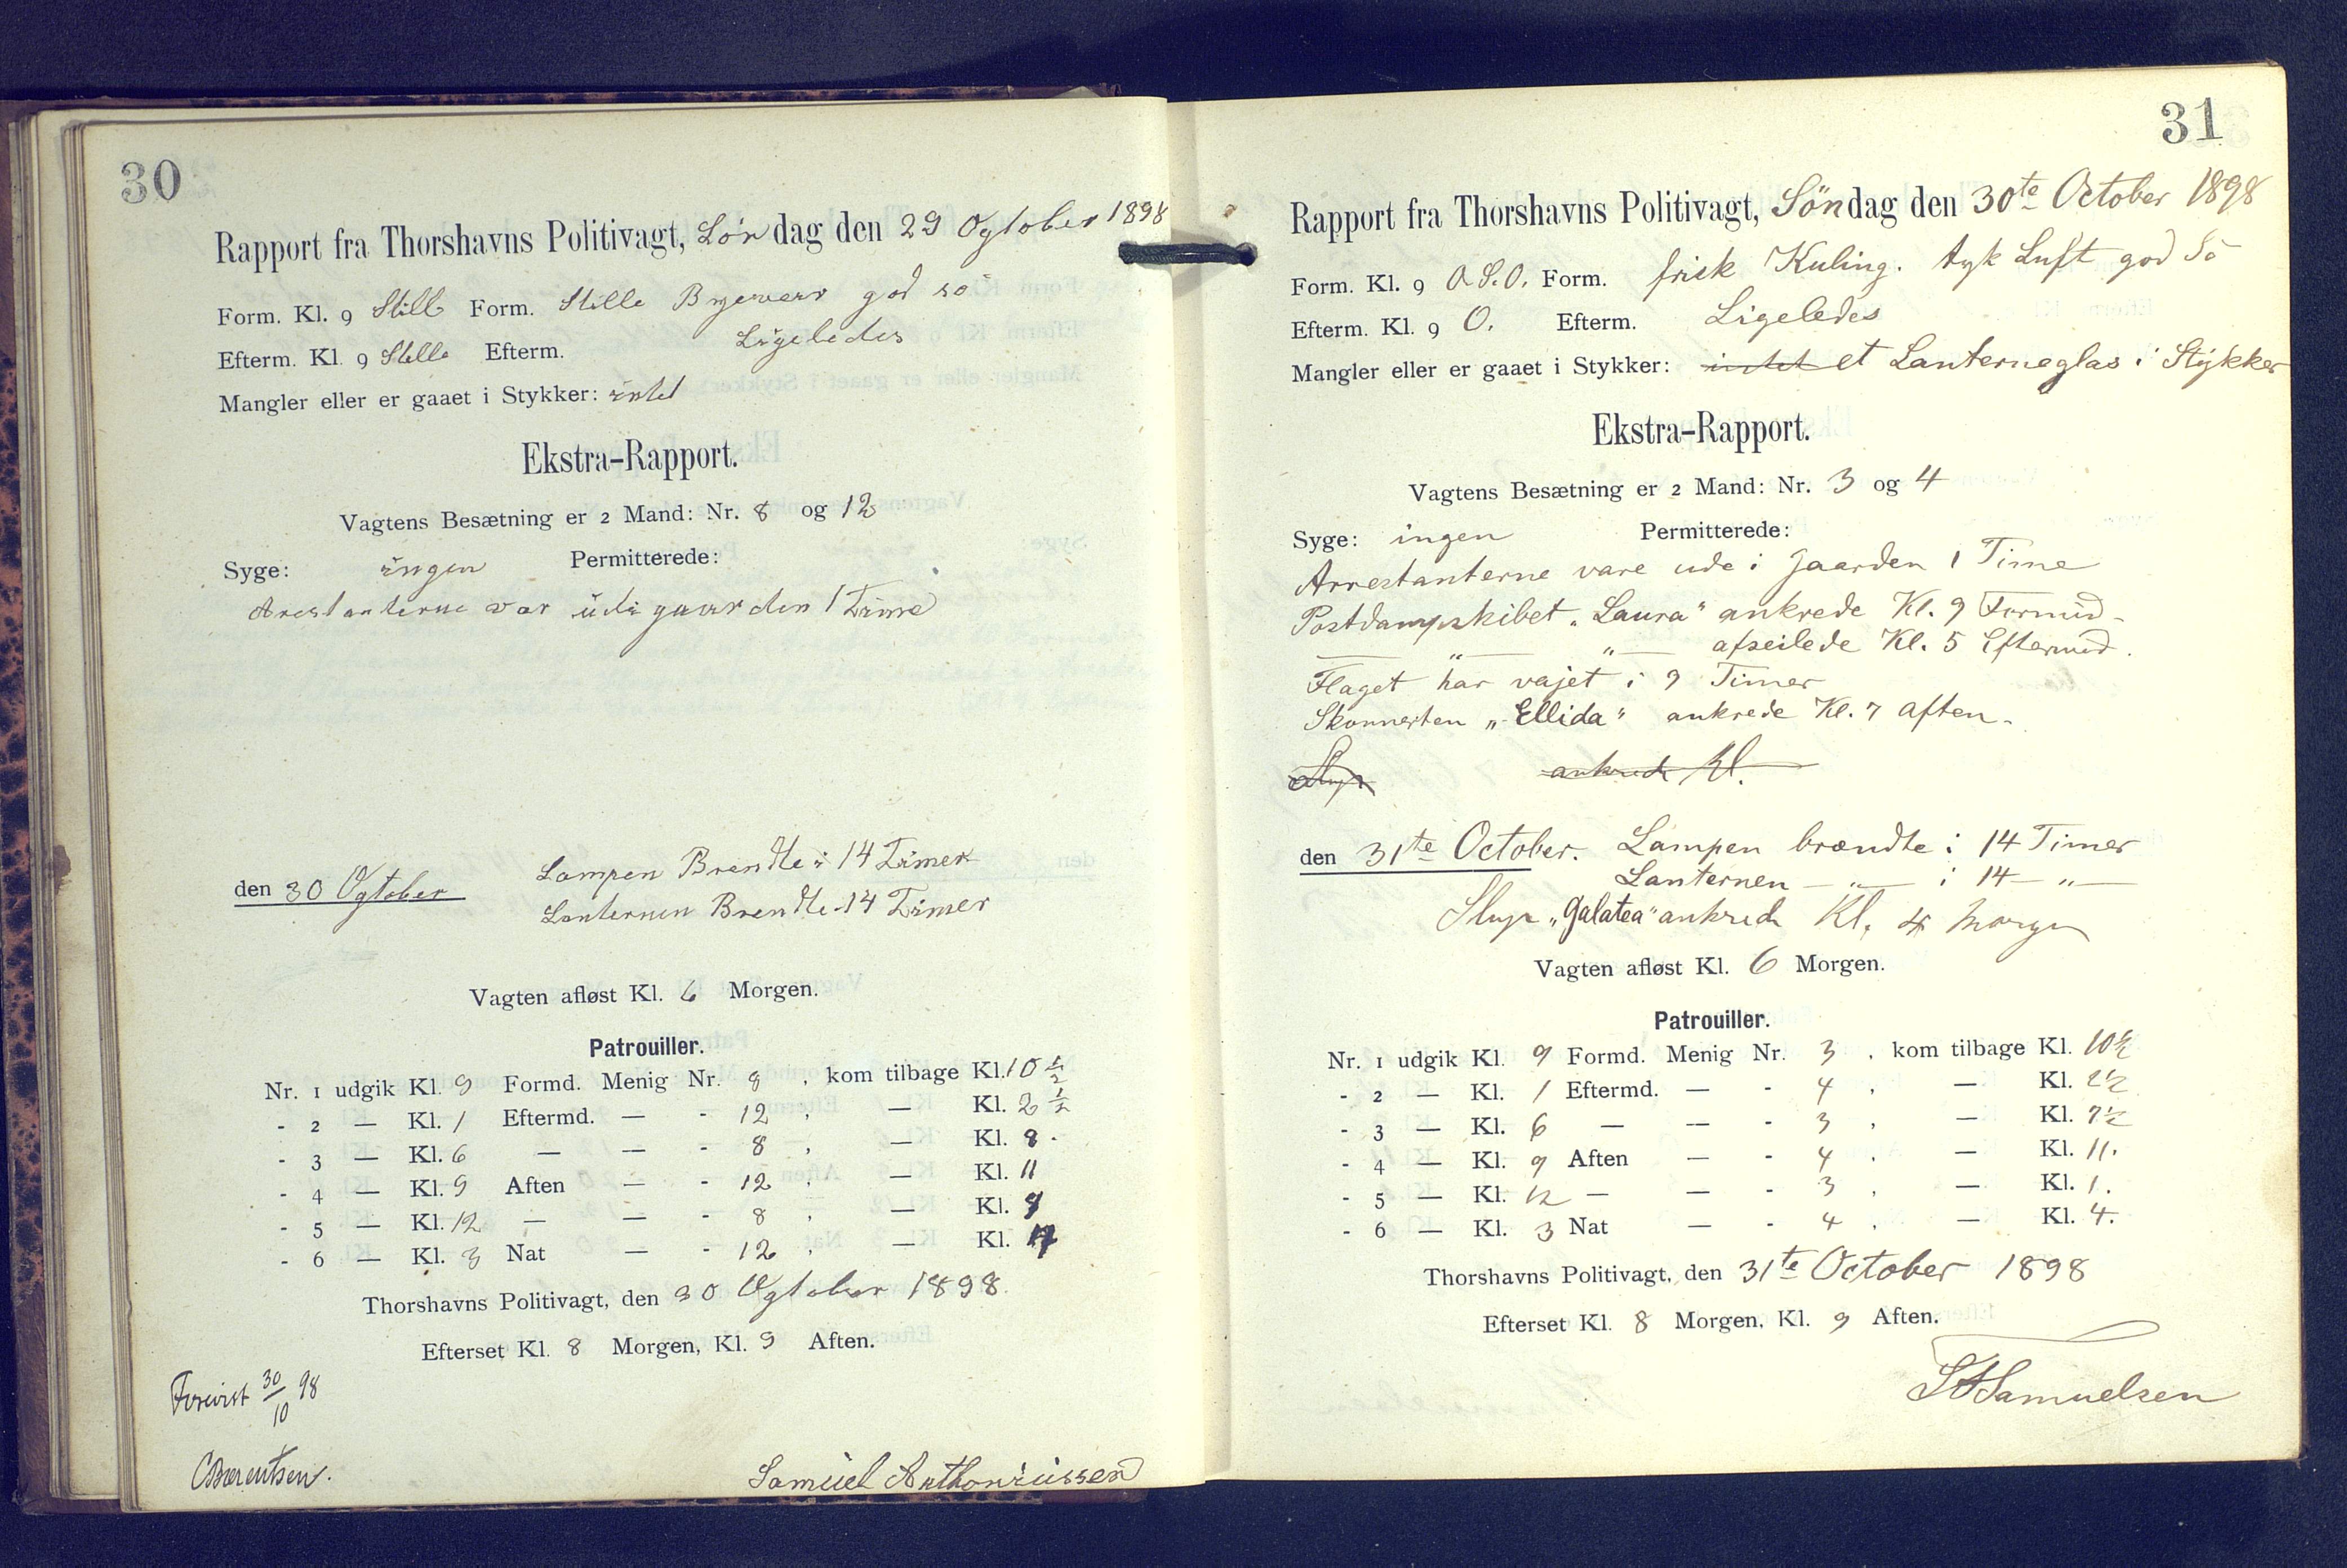 30
Rapport fra Thorshavns Politivagt, Lör dag den 29 Ogtober 1898
Form. Kl. 9 Still Form. Stille Bygeveir god sö
Efterm. Kl. 9 Stille Efterm. Ligeledes
Mangler eller er gaaet i Stykker: intet
Ekstra-Rapport.
Vagtens Besætning er 2 Mand: Nr. 8 og 12
Syge: ingen Permitterede:
Arestanterne var udi gaarden 1 Time
den 30 Ogtober Lampen Brendte i 14 Timer
Lanternen Brendte 14 Timer
Vagten afløst Kl. 6 Morgen.
Patrouiller.
Nr. 1 udgik Kl. 9 Formd. Menig Nr. 8 , kom tilbage Kl. 10 ½
- 2 — Kl. 1 Eftermd. — - 12 , — Kl. 2 ½
- 3 — Kl. 6 — — - 8 , — Kl. 8.
- 4 — Kl. 9 Aften — - 12 , — Kl. 11
- 5 — Kl. 12 — — - 8 , — Kl.
- 6 — Kl. 3 Nat — - 12 , — Kl.
Thorshavns Politivagt, den 30 Ogtober 1898.
Efterset Kl. 8 Morgen, Kl. 9 Aften.
Forevist 30/10 98
CBærentsen.
Samuel Anthoniussen
31
Rapport fra Thorshavns Politivagt, Söndag den 30te October 1898
Form. Kl. 9 O.S.O. Form. frisk Kuling. tyk Luft god Sö
Efterm. Kl. 9 O. Efterm. Ligeledes
Mangler eller er gaaet i Stykker: intet et Lanterneglas i Stykker
Ekstra-Rapport.
Vagtens Besætning er 2 Mand: Nr. 3 og 4
Syge: ingen Permitterede:
Arrestanterne vare ude i Gaarden 1 Time
Postdampskibet „Laura" ankrede Kl. 9 Formid-
— „ — „ — afseilede Kl. 5 Eftermid.
Flaget har vajet i 9 Timer
Skonnerten „Ellida" ankrede Kl. 7 aften.
Slup ankrede Kl.
den 31te October. Lampen brændte i 14 Timer
Lanternen — „ — i 14 — „ —
Slup „Galatea" ankrede Kl. 4 Morgen
Vagten afløst Kl. 6 Morgen.
Patrouiller.
Nr. 1 udgik Kl. 9 Formd. Menig Nr. 3 , kom tilbage Kl. 10½
- 2 — Kl. 1 Eftermd. — - 4 , — Kl. 2½
- 3 — Kl. 6 — — - 3 , — Kl. 7½
- 4 — Kl. 9 Aften — - 4 , — Kl. 11.
- 5 — Kl. 12 — — - 3 , — Kl. 1.
- 6 — Kl. 3 Nat — - 4 , — Kl. 4.
Thorshavns Politivagt, den 31te October 1898
Efterset Kl. 8 Morgen, Kl. 9 Aften.
Samuelsen